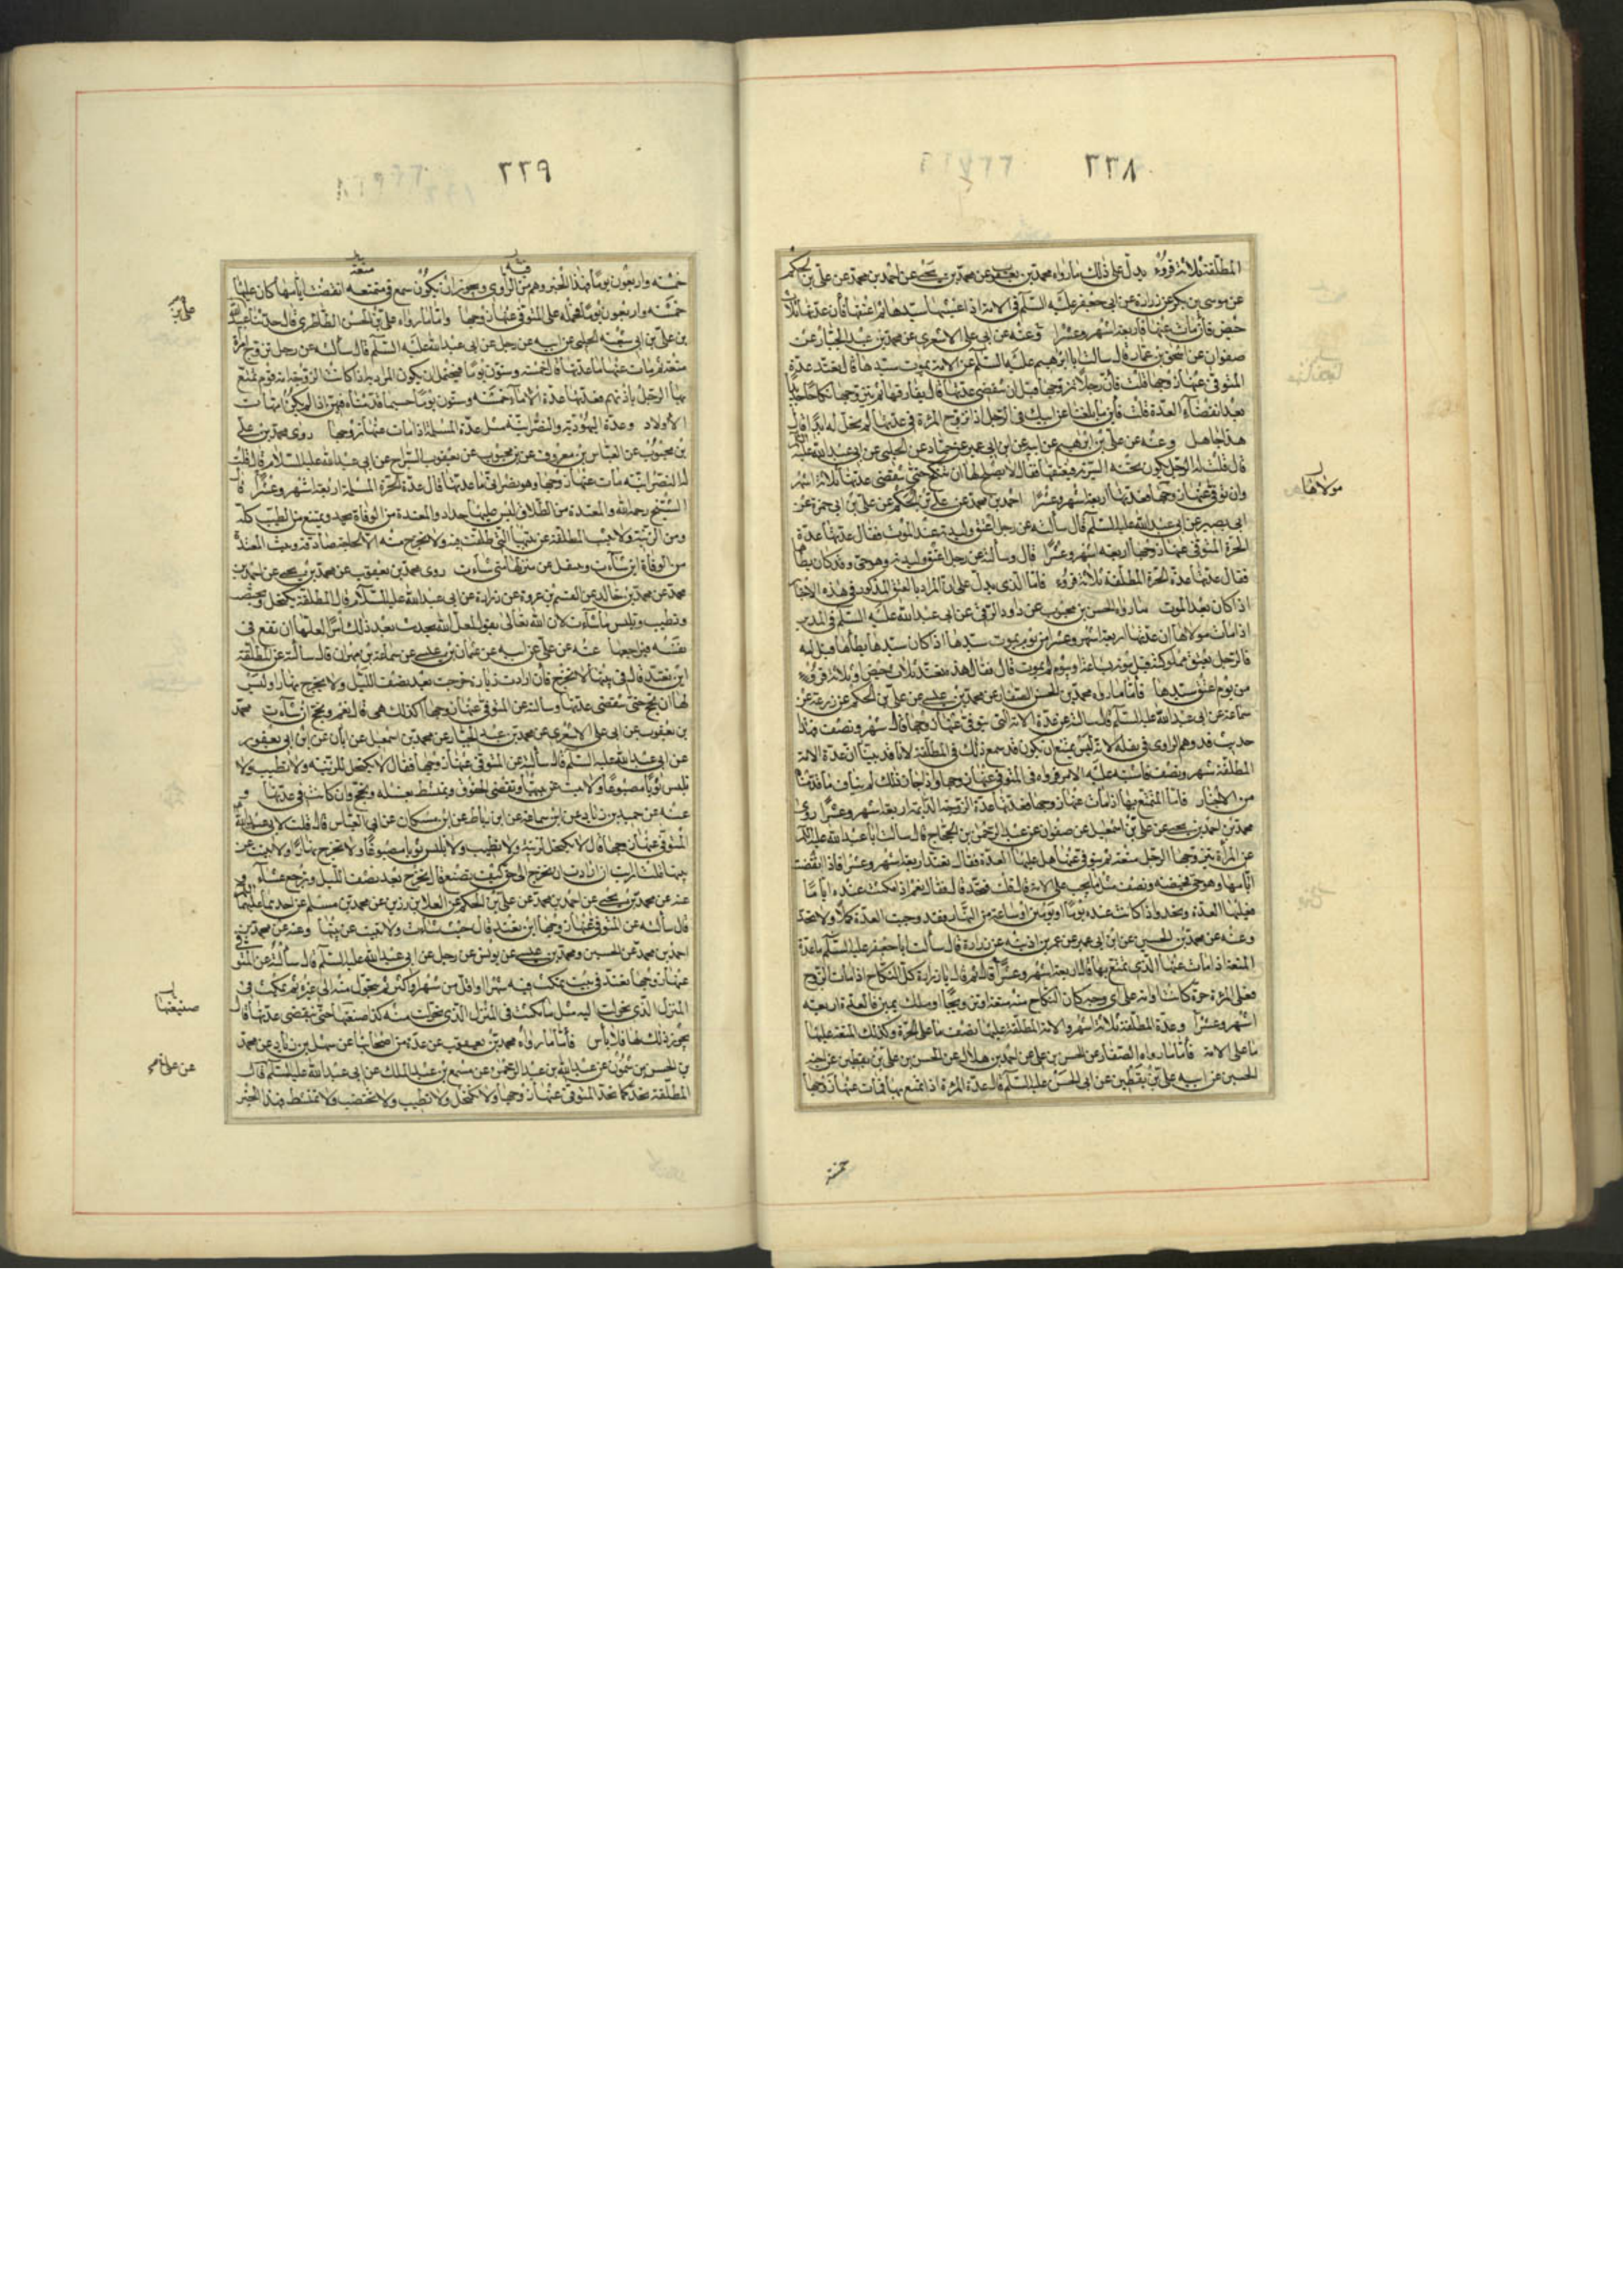 ٢٣٨
المطلقة ثلاثة قروء يدل على ذلك ما رواه محمد بن يعقوب عن محمد بن يحيى عن احمد بن محمد عن على بن الحكم
عن موسى بن بكر عن زرارة عن ابى جعفر عليه السلم فى الامة اذا غشيها سيدها ثم اعتقها فان عدتها ثلاث
حيض فان مات عنها فاربعة اشهر وعشرا وعنه عن ابى على الاشعرى عن محمد بن عبد الجبار عن
صفوان عن اسحق بن عمار قال سالت ابا ابرهيم عليه السلم عن الامة يموت سيدها قال تعتد عدة
المتوفى عنها زوجها قلت فان رجلا تزوجها قبل ان تنقضى عدتها قال يفارقها ثم يتزوجها نكاحا جديدا
بعد انقضاء العدة قلت فاين ما بلغنا عن ابيك فى الرجل اذا تزوج المرءة فى عدتها لم يحل له ابدا قال
هذا جاهل وعنه عن على بن ابرهيم عن ابيه عن ابن ابى عمير عن حماد عن الحلبى عن ابى عبد الله عليه السلم
قال قلت له الرجل يكون تحته السرية فيعتقها فقال لا يصلح لها ان تنكح حتى تنقضى عدتها ثلاثة اشهر
وان توفى عنها زوجها فعدتها اربعة اشهر وعشرا احمد بن محمد عن على بن الحكم عن على بن ابى حمزة عن
ابى بصير عن ابى عبد الله عليه السلم قال سألته عن رجل اعتق وليدته عند الموت فقال عدتها عدة
الحرة المتوفى عنها زوجها اربعة اشهر وعشرا قال وسألته عن رجل اعتق وليدته وهو حى وقد كان يطأها
فقال عدتها عدة الحرة المطلقة ثلاثة قروء فاما الذى يدل على ان المراد بالعتق المذكور فى هذه الاخبار
اذا كان بعد الموت ما رواه الحسن بن محبوب عن داود الرقى عن ابى عبد الله عليه السلم فى المدبرة
اذا مات مولاها ان عدتها اربعة اشهر وعشرا من يوم يموت سيدها اذا كان سيدها يطأها قيل له
فالرجل يعتق مملوكته قبل موته بساعة او بيوم ثم يموت قال فقال هذه تعتد ثلاث حيض او ثلاثة قروء
من يوم اعتق سيدها فأما ما رواه محمد بن الحسن الصفار عن محمد بن عيسى عن على بن الحكم عن زرعة عن
سماعة عن ابى عبد الله عليه السلم قال سالته عن عدة الامة التى توفى عنها زوجها قال شهر ونصف فهذا
حديث قد وهم الراوى فى نقله لانه ليس يمتنع ان يكون قد سمع ذلك فى المطلقة لانا قد بينا ان عدة الامة
المطلقة شهر ونصف فاشتبه عليه الامر فرواه فى المتوفى عنها زوجها واذا جاز ذلك لم يناف ما قدمنا
من الاخبار فاما المتمتع بها اذا مات عنها زوجها فعدتها عدة الزوجة الدايمة اربعة اشهر وعشرا روى
محمد بن احمد بن يحيى عن على بن اسمعيل عن صفوان عن عبد الرحمن بن الحجاج قال سالت ابا عبد الله عليه السلم
عن المرأة يتزوجها الرجل متعة ثم يتوفى عنها هل عليها العدة فقال تعتد اربعة اشهر وعشرا فاذا انقضت
ايامها وهو حى فحيضة ونصف مثل ما يجب على الامة قال قلت فتحد قال فقال نعم اذا مكثت عنده اياما
فعليها العدة وتحد واذا كانت عنده يوما او يومين او ساعة من النهار فقد وجبت العدة كملا ولا تحد
وعنه عن محمد بن الحسين عن ابن ابى عمير عن عمر بن اذينة عن زرارة قال سألت ابا جعفر عليه السلم ما عدة
المتعة اذا مات عنها الذى تمتع بها قال اربعة اشهر وعشرا قال ثم قال يا زرارة كل النكاح اذا مات الزوج
فعلى المرءة حرة كانت او امة على اى وجه كان النكاح منه متعة او تزويجا او ملك يمين فالعدة اربعة
اشهر وعشرا وعدة المطلقة ثلاثة اشهر والامة المطلقة عليها نصف ما على الحرة وكذلك المتعة عليها
ما على الامة فأما ما رواه الصفار عن الحسن بن على عن احمد بن هلال عن الحسن بن على بن يقطين عن اخيه
الحسين عن ابيه على بن يقطين عن ابى الحسن عليه السلم قال عدة المرءة اذا تمتع بها فمات عنها زوجها
مولاها
خمسة
٢٣٩
خمسة واربعون يوما فهذا الخبر وهم من الراوى ويجوز ان يكون سمع فى متمتعه انقضت ايامها كان عليها
خمسة واربعون يوما فحمله على المتوفى عنها زوجها واما ما رواه على بن الحسن الطاطرى قال حدثنا عبد الله
بن على بن ابى شعبة الحلبى عن ابيه عن رجل عن ابى عبد الله عليه السلم قال سألته عن رجل تزوج امرأة
متعة ثم مات عنها ما عدتها قال خمسة وستون يوما فيحتمل ان يكون المراد به اذا كانت الزوجة امة قوم تمتع
بها الرجل باذنهم فعدتها عدة الاماء خمسة وستون يوما حسبما قدمناه فيهن اذا لم يكن امهات
الاولاد وعدة اليهودية والنصرانية مثل عدة المسلمة اذا مات عنها زوجها روى محمد بن على
بن محبوب عن العباس بن معروف عن بن محبوب عن يعقوب السراج عن ابى عبد الله عليه السلام قال قلت
له النصرانية مات عنها زوجها وهو نصرانى ما عدتها قال عدة الحرة المسلمة اربعة اشهر وعشرا قال
الشيخ رحمه الله والمعتدة من الطلاق ليس عليها حداد والمعتدة من الوفاة تحد وتمتنع من الطيب كله
ومن الزينة ولا تبيت المطلقة عن بيتها التى طلقت فيه ولا تخرج منه الا لحاجة صادقة وتبيت المعتدة
من الوفاة اين شاءت وتنتقل عن منزلها متى شاءت روى محمد بن يعقوب عن محمد بن يحيى عن احمد بن
محمد عن محمد بن خالد عن القسم بن عروة عن زرارة عن ابى عبد الله عليه السلام قال المطلقة تكتحل وتختضب
وتطيب وتلبس ما شاءت لان الله تعالى يقول لعل الله يحدث بعد ذلك امرا لعلها ان تقع فى
نفسه فيراجعها عنه عن على عن ابيه عن عثمان بن عيسى عن سماعة بن مهران قال سالته عن المطلقة
اين تعتد قال فى بيتها لا تخرج فان ارادت زيارة خرجت بعد نصف الليل ولا تخرج نهارا وليس
لها ان تحج حتى تنقضى عدتها وسالته عن المتوفى عنها زوجها اكذلك هى قال نعم وتحج ان شاءت محمد
بن يعقوب عن ابى على الاشعرى عن محمد بن عبد الجبار عن محمد بن اسمعيل عن ابان عن ابن ابى يعفور
عن ابى عبد الله عليه السلم قال سألته عن المتوفى عنها زوجها فقال لا تكتحل للزينة ولا تطيب ولا
تلبس ثوبا مصبوغا ولا تبيت عن بيتها وتقضى الحقوق وتمتشط بغسلة وتحج وان كانت فى عدتها و
عنه عن حميد بن زياد عن ابن سماعة عن ابن رباط عن ابن مسكان عن ابى العباس قال قلت لابى عبد الله
المتوفى عنها زوجها قال لا تكتحل لزينة ولا تطيب ولا تلبس ثوبا مصبوغا ولا تخرج نهارا ولا تبيت عن
بيتها قلت ارايت ان ارادت ان تخرج الى حق كيف تصنع قال تخرج بعد نصف الليل وترجع عشاء و
عنه عن محمد بن يحيى عن احمد بن محمد عن على بن الحكم عن العلا بن رزين عن محمد بن مسلم عن احدهما عليهما السلم
قال سألته عن المتوفى عنها زوجها اين تعتد قال حيث شاءت ولا تبيت عن بيتها وعنه عن محمد بن
احمد بن محمد عن الحسين ومحمد بن عيسى عن يونس عن رجل عن ابى عبد الله عليه السلم قال سألته عن المتوفى
عنها زوجها تعتد فى بيت تمكث فيه شهرا او اقل من شهر او اكثر ثم تتحول منه الى غيره ثم تمكث فى
المنزل الذى تحولت اليه مثل ما مكثت فى المنزل الذى تحولت منه كذا صنعتها حتى تنقضى عدتها قال
يجوز ذلك لها فلا بأس فأما ما رواه محمد بن يعقوب عن عدة من اصحابنا عن سهل بن زياد عن محمد
بن الحسن بن شمون عن عبد الله بن عبد الرحمن عن مسمع بن عبد الملك عن ابى عبد الله عليه السلم قال
المطلقة تحد كما تحد المتوفى عنها زوجها ولا تكتحل ولا تطيب ولا تختضب ولا تمتشط فهذا الخبر
صنيعها